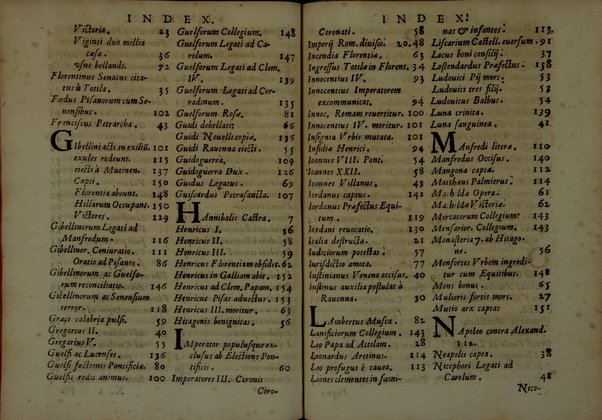 INDEX.
Victoria. 23
Viginti duo millia
casa. 36
usus bellandi. 72
Florentinus Senatus cita-
tus à Totila. 35
Fœdus Pisanorum cum Se-
nensibus. 102
Franciscus Petrarcha. 43
Gibellini acti in exilium. 101
exules redeunt. 115
eiecti à Mucinen. 137
Capti. 150
Florentia abeunt. 148
Hillarum Occupant. 150
Victores. 129
Gibellinorum Legati ad
Manfredum. 116
Gibellinor. Coniuratio. 111
Oratio ad Pisanos. 86
Gibellinorum ac Guelfo-
rum reconciliatio. 146
Gibellinorum ac Senensium
terror. 118
Graci calabria pulsi. 59
Gregorius II. 40
Gregorius V. 55
Guelfi ac Lucenses. 136
Guelfi factionis Pontificia. 80
Guelfis redit animus. 100
Guelforum Collegium. 148
Guelforum Legati ad Ca-
rolum. 147
Guelforum Legati ad Clem.
IV. 139
Guelforum Legati ad Cor-
radinum. 135
Guelforum Rosa. 81
Guidi debellati. 66
Guidi Novelli copia. 136
Guidi Ravenna eiecti. 55
Guidoguerra. 109
Guidoguerra Dux. 126
Guidus Legatus. 69
Guiscardus Petrasancta. 107
Hannibalis Castra. 7
Henricus I. 56
Henricus II. 58
Henricus III. 59
Henricus Florentiam obsidet. 62
Henricus in Galliam abit. 152
Henricus ad Clem. Papam. 154
Henricus Pisas aduectus. 153
Henricus III. moritur. 63
Hitagonis benignitas. 56
Imperator populusque ex-
clusus ab Electione Pon-
tificis. 60
Imperatores III. Coronis
Coro-
INDEX.
Coronati. 58
Imperij Rom. diuisio. 20.48
Incendia Florentia. 63
Ingressus Totila in Florent. 34
Innocentius IV. 93
Innocentius Imperatorem
excommunicat. 94
Innoc. Romam reuertitur. 100
Innocentius IV. moritur. 101
Insignia Vrbis mutata. 101
Insidia Henrici. 94
Ioannes VIII. Pont. 54
Ioannes XXII. 58
Ioannes Villanus. 43
Iordanus captus. 141
Iordanus Præfectus Equi-
tum. 119
Iordani reuocatio. 130
Italia destructa. 21
Iudiciorum potestas. 57
Iurisdictio amota. 77
Iustinianus Veneno occisus. 40
Iustinus auxilia postulat à
Rauenna. 30
Lambertus Musca. 82
Lanificiorum Collegium. 143
Leo Papa ad Attilam. 28
Leonardus Aretinus. 114
Leo profugus è cauea. 113
Leones clementes in fœmi-
nas & infantes. 113
Lifcarium Castell. euersum. 91
Locus boni consilij. 37
Lostendardus Præfectus. 158
Ludouici Pij mors. 53
Ludouici tres filij. 53
Ludouicus Balbus. 54
Luna crinita. 139
Luna sanguinea. 41
Manfredi litera. 110
Manfredus Occisus. 140
Mangona capta. 112
Mattheus Palmierus. 114
Mathilda Opera. 61
Mathildæ Victoria. 62
Mercatorum Collegium. 143
Mensarior. Collegium. 143
Monasteria 7. ab Hitago-
ne. 56
Monfortes Vrbem ingredi-
tur cum Equitibus. 148
Mons bonus. 65
Mulieris fortis mors. 27
Mutio arx captas 151
Napoleo contra Alexand.
112.
Neapolis capta. 38
Nicephori Legati ad
Carolum. 48
Nico-